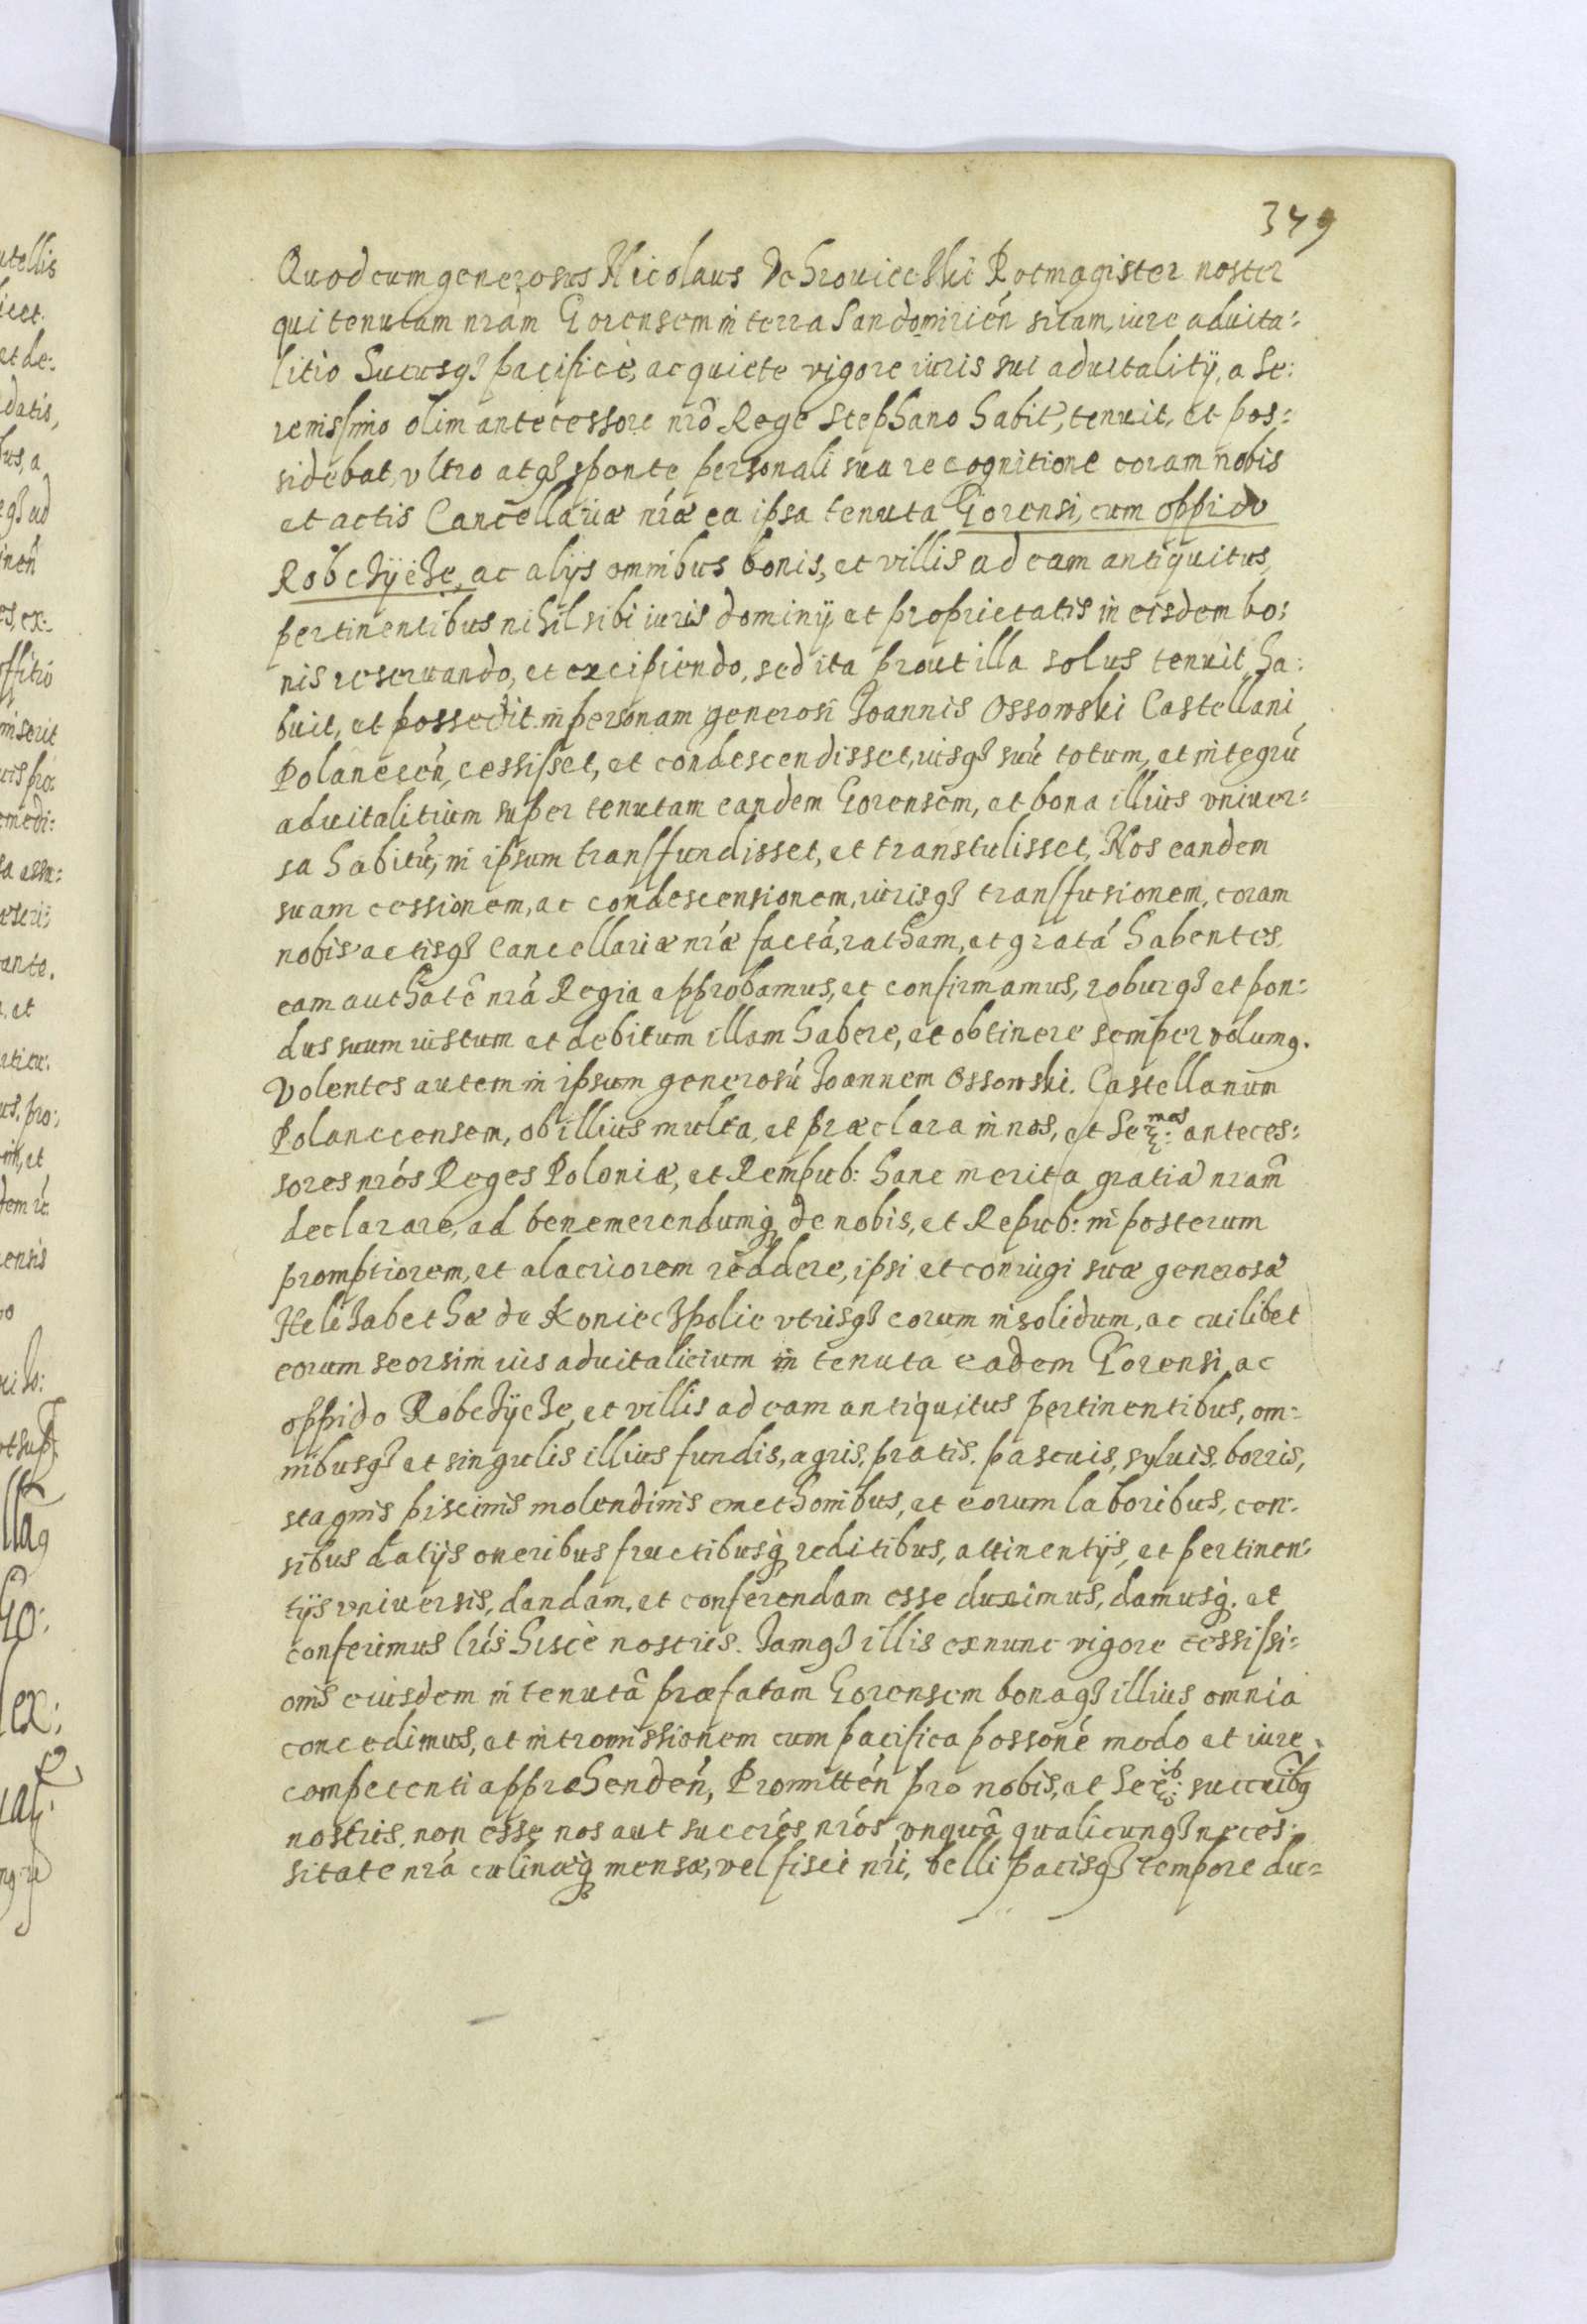 349
Quod cum generosus Nicolaus Uchrouiecski Rotmagister noster
qui tenutam nrãm Gorensem in terra Sandomirień sitam, iure aduita:
litio Sucusq3 pacificè, ac quiete vigore iuris sui aduitalitÿ, a Se:
renissimo olim antecessore nrõ Rege Stephano habit, tenuit, et pos:
sidebat, vltro atq3 sponte personali sua recognitione coram nobis
et actis Cancellariæ nræ ea ipsa tenuta Gorensi, cum oppido
Robczÿcze, ac alÿs omnibus bonis, et villis ad eam antiquitus,
pertinentibus nihil sibi iuris dominÿ et proprietatis in eisdem bo:
nis reseruando, et excipiendo, sed ita prout illa solus tenuit, ha:
buit, et possedit. in personam generosi Joannis Ossowski Castellani
Polanecen, cessisset, et condescendisset, iusq3 suú totum, et integrú
aduitalitium super tenutam eandem Gorensem, et bona illius vniuer:
sa habitú, in ipsum transfundisset, et transtulisset, Nos eandem
suam cessionem, ac condescensionem, iurisq3 transfusionem, coram
nobis actisq3 Cancellariæ nræ factá, ratham, et gratá habentes,
eam authatê nrá Regia approbamus, et confirmamus, roburq3 et pon:
dus suum iustum et debitum illam habere, et obtinere semper volumq.
Volentes autem in ipsum generosú Joannem Ossowski. Castellanum
Polanecensem, ob illius multa, et præclara in nos, et Ser: mos anteces:
sores nrós Reges Poloniæ, et Rempub: hanc merita gratiã nram̃
declarare, ad benemerendumq de nobis, et Repub: in posterum
promptiorem, et alacriorem reddere, ipsi et coniugi suæ generosæ
Helizabethæ de Konieczpolie vtrisq3 eorum insolidum, ac cuilibet
eorum seorsim ius aduitalicium in tenuta eadem Gorensi, ac
oppido Robczÿcze, et villis ad eam antiquitus pertinentibus, om:
nibusq3 et singulis illius fundis, agris, pratis, pascuis, syluis, borris,
stagnis piscinis molendinis cmethonibus, et eorum laboribus, cen:
sibus datÿs oneribus fructibusq reditibus, attinentÿs, et pertinen:
tÿs vniuersis, dandam, et conferendam esse duximus, damusq. et
conferimus lrís hiscè nostris. Jamq3 illis exnunc vigore cessissi:
onis eiusdem in tenutâ præfatam Gorensem bonaq3 illius omnia
concedimus, et intromissionem cum pacifica possoné modo et iure
competenti apprehendeń, Promitteń pro nobis, et Ser: ib succribq
nostris, non esse nos aut succrés nrós vnquâ qualicunq3 neces:
sitate nrá culinæq mensæ, vel fisci nrí, belli pacisq3 tempore du=